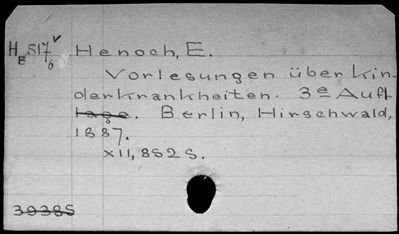 HE 517/6 ✓ Henoch, E.
Vorlesungen über Kin-
derkrankheiten. 3e Aufl
lage. Berlin, Hirschwald,
1887.
XII, 852 S.
39385